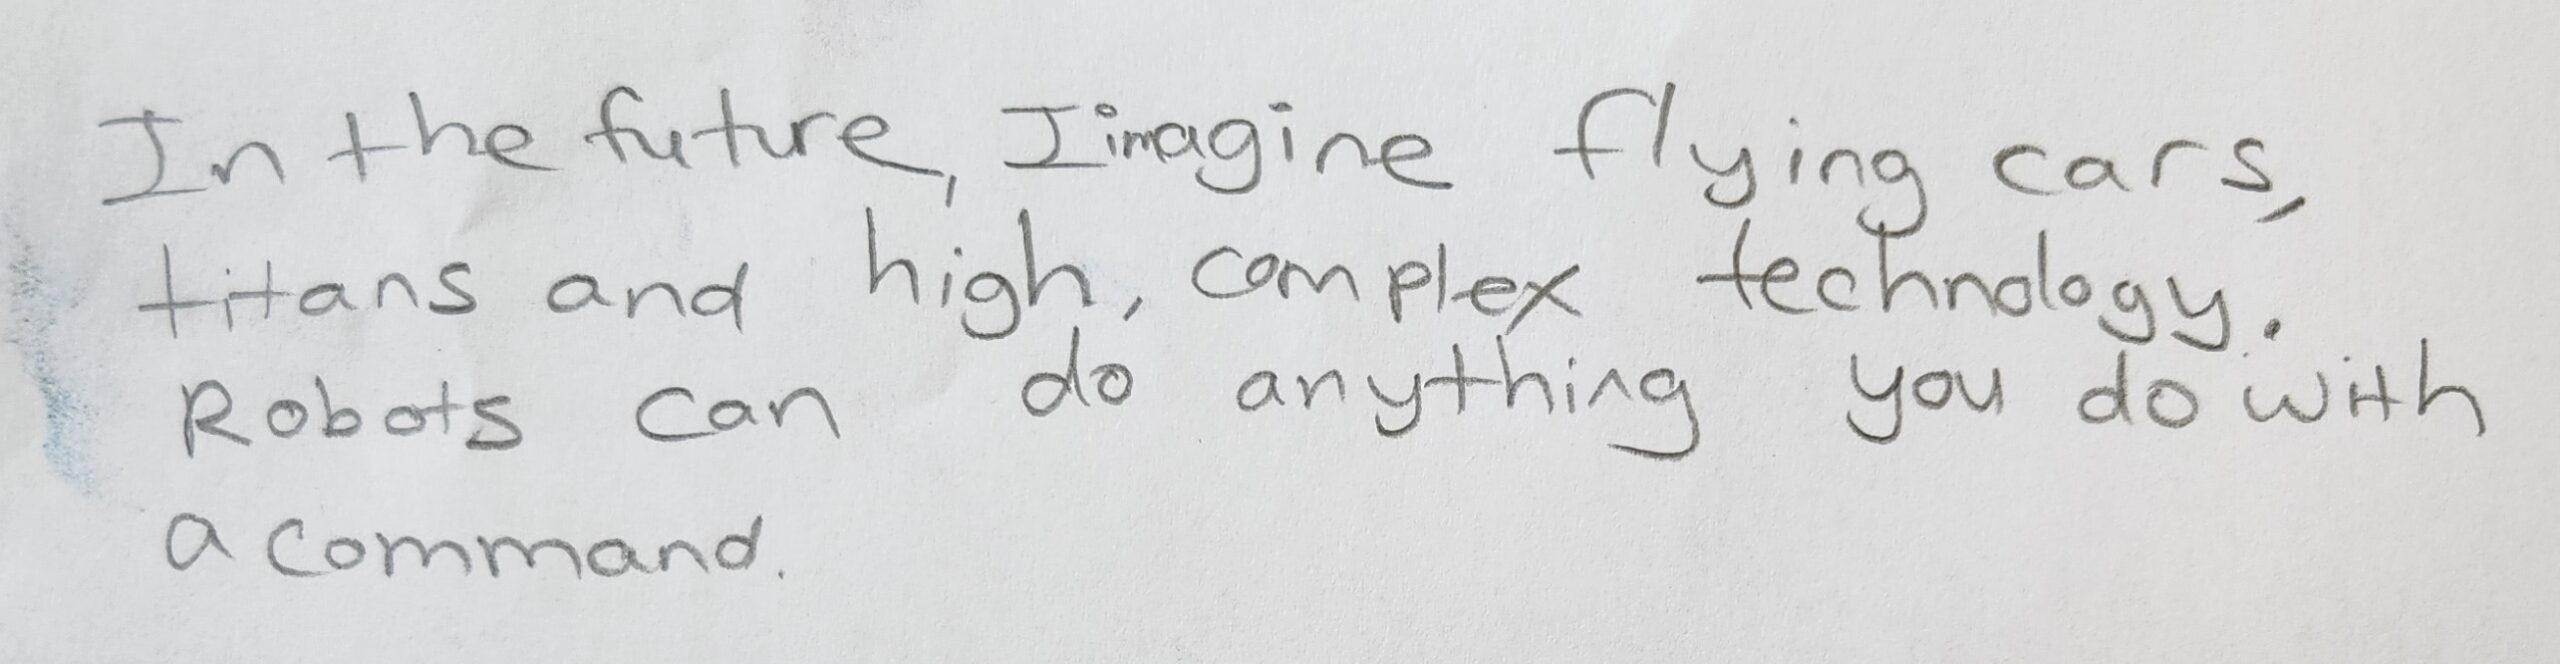 In the future, I imagine flying cars,
titans and high, complex technology.
Robots can do anything you do with
a command.